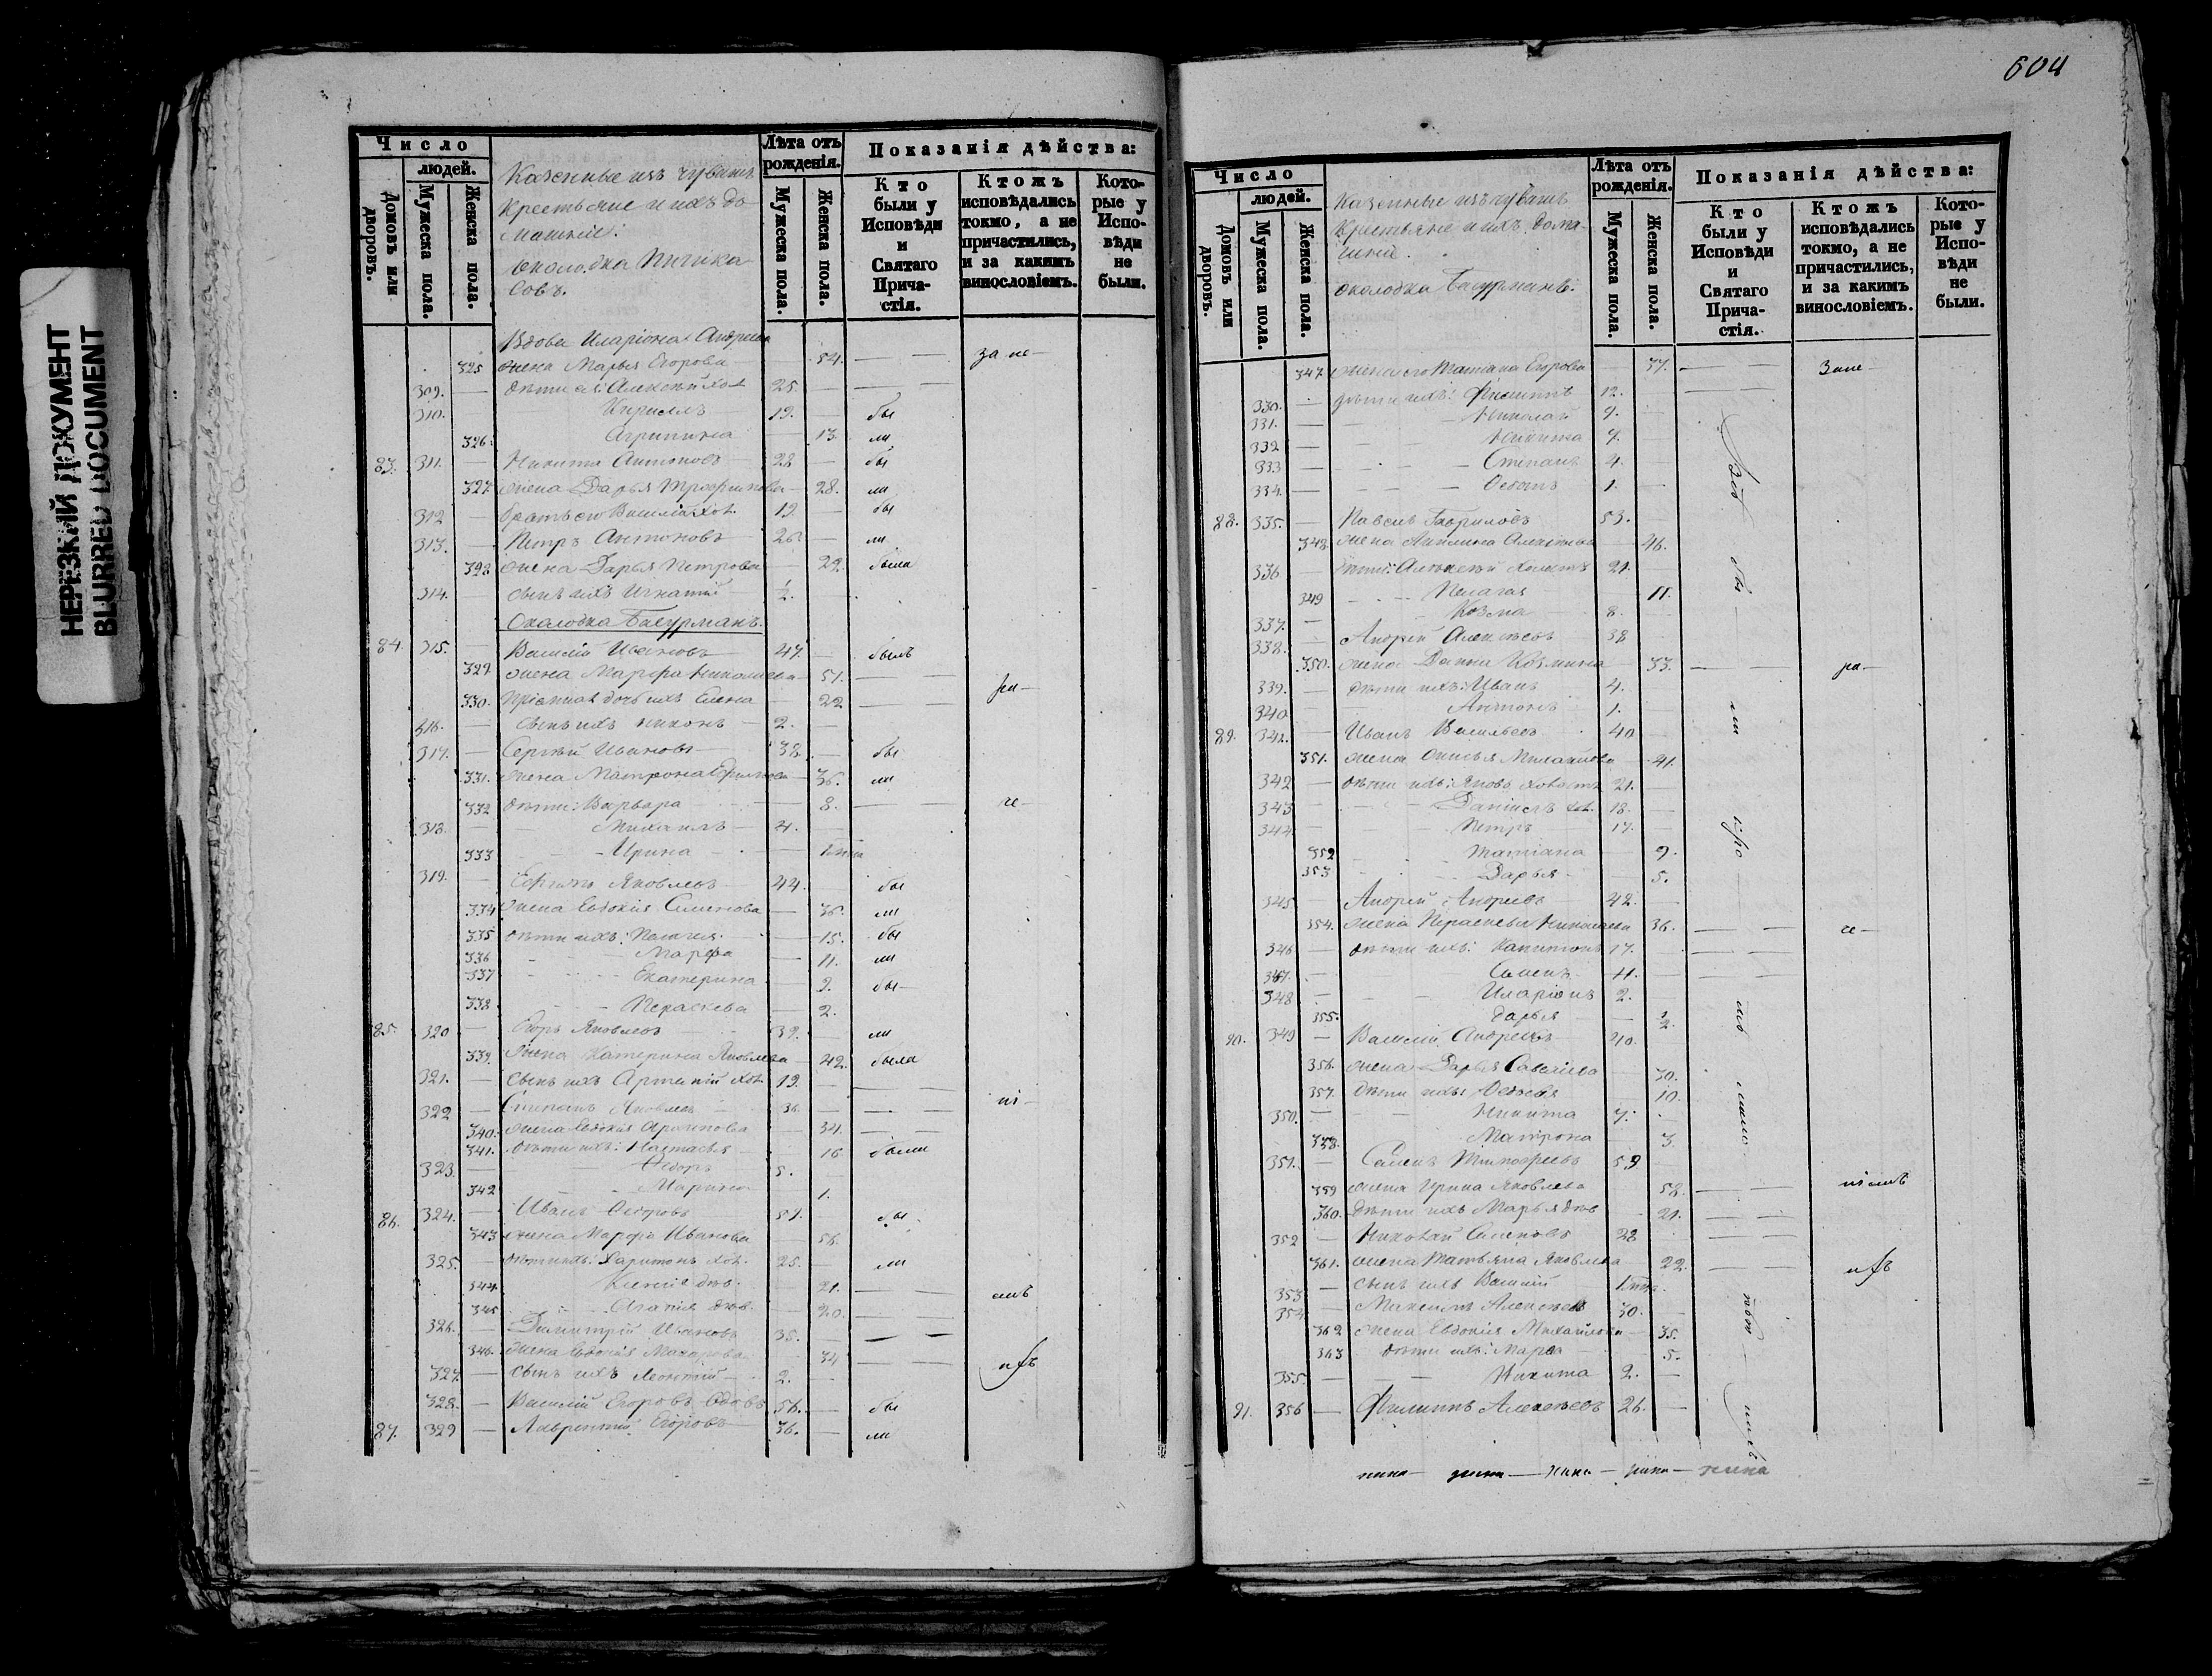 НЕРЕЗКИЙ ДОКУМЕНТ
BLURRED DOCUMENT
Число
людей.
Домовъ или дворовъ.
Мужеска пола.
Женска пола.
Казенные изъ чувашъ
крестьяне и ихъ до
машніе:
околодка
Лѣта отъ рожденія.
Мужеска пола.
Женска пола.
Показанія дѣйства:
Кто были у Исповѣди и Святаго Причастія.
Ктожъ исповѣдались токмо, а не причастились, и за какимъ винословіемъ.
Которые у Исповѣди не были.
Вдова Иларіона Андреева
325 жена Марья Егорова 54. за не
309. дѣти ея: Алексѣй хол 25.
310. Кириллъ 19. бы
326. Агрипина 13. ли
83. 311. Никита Антоновъ 28 бы
327 жена Дарья Трофимова 28. ли
312 братъ его Василій хол. 19. бы
313. Петръ Антоновъ 26. ли
328 жена Дарья Петрова 29. была
314. сынъ ихъ Игнатій
Околодка Басурманъ.
84. 315. Василій Ивановъ 47. былъ
329 жена Марфа Николаева 51.
330. дочь ихъ Елена 22
316. сынъ ихъ Никонъ 2.
317. Сергѣй Ивановъ 38. бы
331. жена Матрона 36. ли
332 дѣти: Варвара 8.
318. Михаилъ 4.
333 Ирина
319. Ефимъ Яковлевъ 44. бы
334 жена Евдокія Семенова 36. ли
335 дѣти ихъ: Пелагея 15. бы
336 Марфа 11. ли
337 Екатерина 9. бы
338 Пераскева 2.
85. 320 Егоръ Яковлевъ 39. ли
339. жена Катерина Яковлева 42. была
321. сынъ ихъ Артемій хол. 19.
322 Степанъ Яковлевъ 36.
340. жена Евдокія 34.
341. дѣти ихъ: Настасья 16 были
323. Ѳедоръ 5.
342 Марина 1.
86. 324. Иванъ Ѳедоровъ 51. бы
343 жена Марфа Иванова 56.
325. дѣти ихъ: Харитонъ хол. 25. ли
344. Ксенія дѣв. 21.
345 Агапія дѣв. 20.
326. Димитрій Ивановъ 35.
346. жена Евдокія Макарова 34
327. сынъ ихъ Леонтій 2.
328. Василій Егоровъ вдовъ 56. бы
87. 329 Лаврентій Егоровъ 36. ли
604
Число
людей.
Домовъ или дворовъ.
Мужеска пола.
Женска пола.
Казенные изъ чувашъ
крестьяне и ихъ дома-
шніе.
околодка Басурманъ.
Лѣта отъ рожденія.
Мужеска пола.
Женска пола.
Показанія дѣйства:
Кто были у Исповѣди и Святаго Причастія.
Ктожъ исповѣдались токмо, а не причастились, и за какимъ винословіемъ.
Которые у Исповѣди не были.
347 жена его Татіана Егорова 37. Зане
330. дѣти ихъ: Филиппъ 12.
331. Николай 9.
332 Никита 7.
333 Степанъ 4.
334. 1.
88. 335. Павелъ Гавриловъ 53.
348. жена Акилина Алексѣева 46.
336 дѣти: Алексѣй холостъ 21.
349 Пелагея 11.
337. Козма 8.
338. Андрей Алексѣевъ 38
350. жена Козмина 33.
339. дѣти ихъ: Иванъ 4.
340 Антонъ 1.
89. 341. Иванъ Васильевъ 40
351. жена Михайлова 41.
342 дѣти ихъ: Яковъ холостъ 21.
343 Даніилъ хол. 18.
344 Петръ 17.
352 Татіана 9.
353 Дарья 5.
345 Андрей Андреевъ 42.
354. жена Пераскевья Николаева 36.
346 дѣти ихъ: Капитонъ 17.
347. Семенъ
348 Иларіонъ 2.
355. Дарья
90. 349 Василій Андреевъ 40.
356. жена Дарья Савельева 30.
357. дѣти ихъ: Ѳедосья 10.
350. Никита 7.
358. Матрона 3.
351. Семенъ Тимофеевъ 59
359 жена Ирина Яковлева 58.
360. дѣти ихъ Марья дѣв 21.
352 Николай Семеновъ 28
361. жена Татьяна Яковлева 22.
353 сынъ ихъ Василій
354 Максимъ Алексѣевъ 30.
362 жена Евдокія Михайлова 35.
363 дѣти ихъ: Марѳа 5.
355. Никита 2.
91. 356 Филиппъ Алексѣевъ 26.